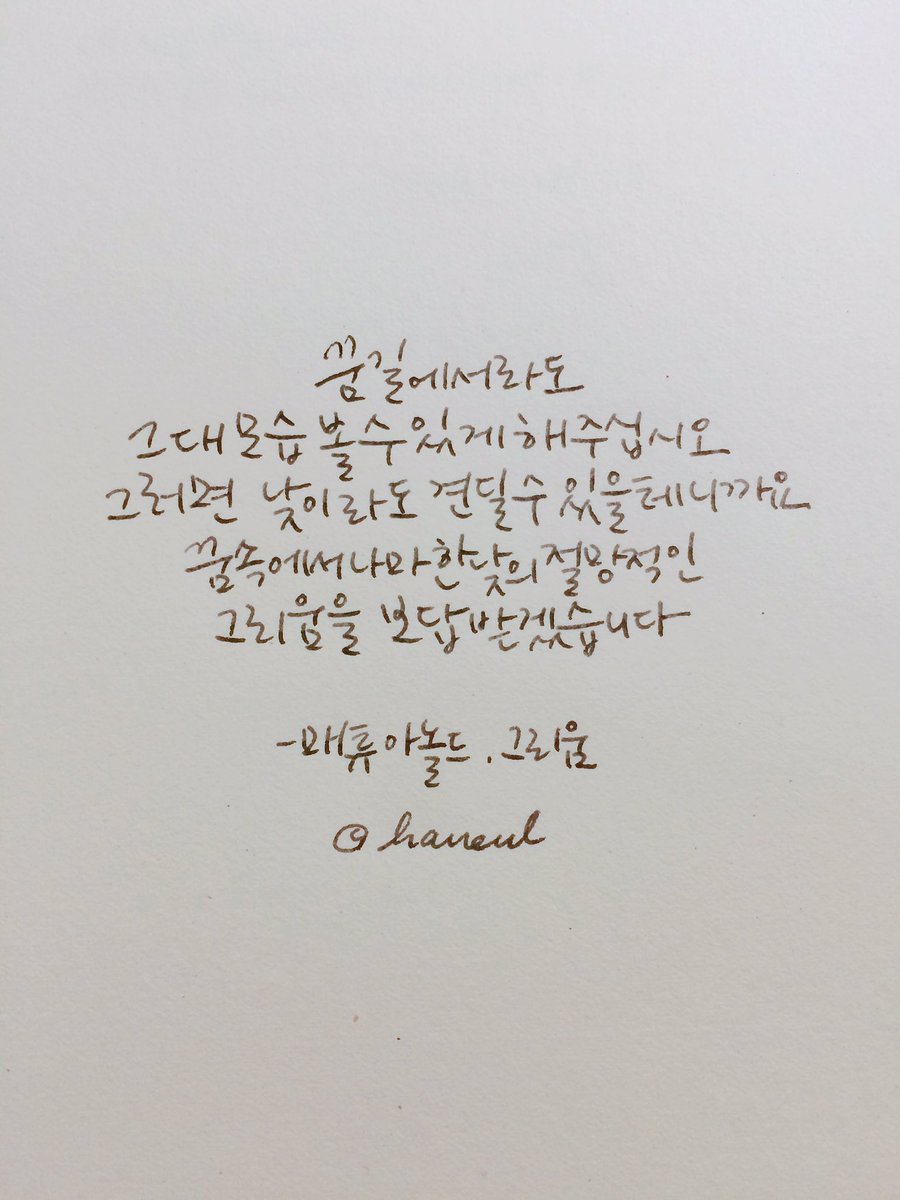 꿈길에서라도
그대 모습 볼 수 있게 해주십시오
그러면 낮이라도 견딜 수 있을테니까요
꿈속에서나마 한낮의 절망적인
그리움을 보답 받겠습니다
-매튜 아놀드, 그리움
@haneul